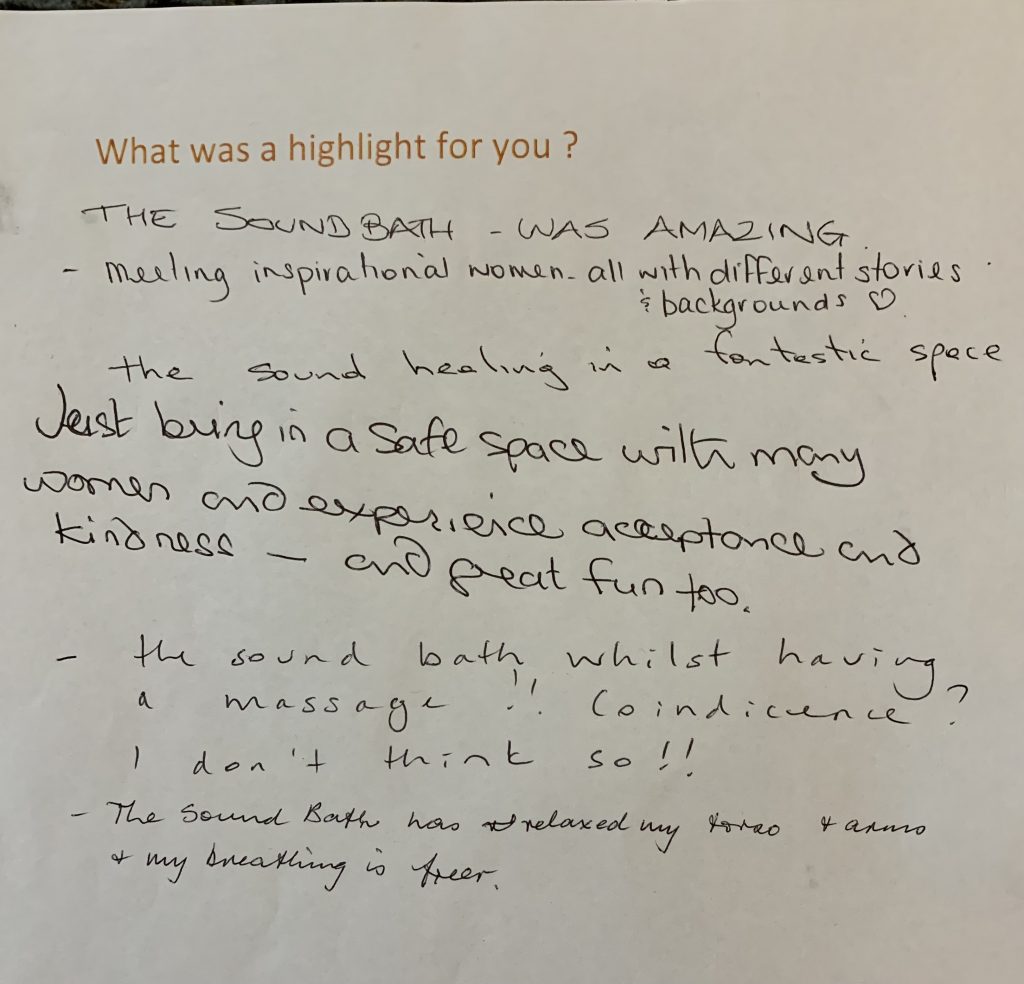 What was a highlight for you ?
THE SOUND BATH - WAS AMAZING.
- meeting inspirational women - all with different stories
& backgrounds ♡
the sound healing in a fantastic space
Just being in a safe space with many
women and experience acceptance and
kindness — and great fun too.
- the sound bath whilst having
a massage !! Coindicence ?
I don't think so !!
- The Sound Bath has relaxed my torso & arms
& my breathing is freer.